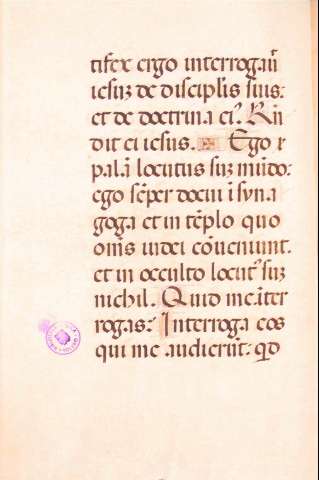 tifex ergo interrogavit̄
iesuʒ de discipl̄is suis:
et de doctrina ei᾽. Rn̄
dit ei iesus. ✠ Ego p
palā locutus suʒ mūdo:
ego sēper docui ī syna
goga et in tēplo quo
om̄s iudei cōveniunt.
et in occulto locut᾽ suʒ
nichil. Quid me īter
rogas: Interroga eos
qui me audierūt: qd